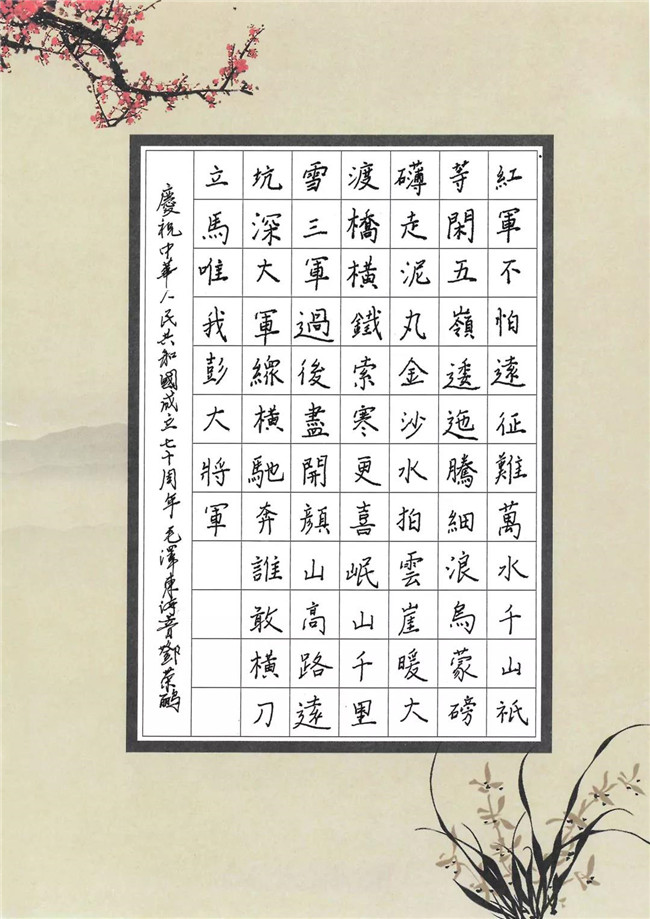 紅軍不怕遠征難萬水千山祇
等閑五嶺逶迤騰細浪烏蒙磅
礴走泥丸金沙水拍雲崖暖大
渡橋橫鐵索寒更喜岷山千里
雪三軍過後盡開顏山高路遠
坑深大軍縱橫馳奔誰敢橫刀
立馬唯我彭大將軍
慶祝中華人民共和國成立七十周年 毛澤東詩二首 鄧榮